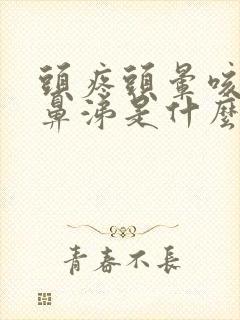 頭疼頭暈咳
鼻涕是什麼
青春不長